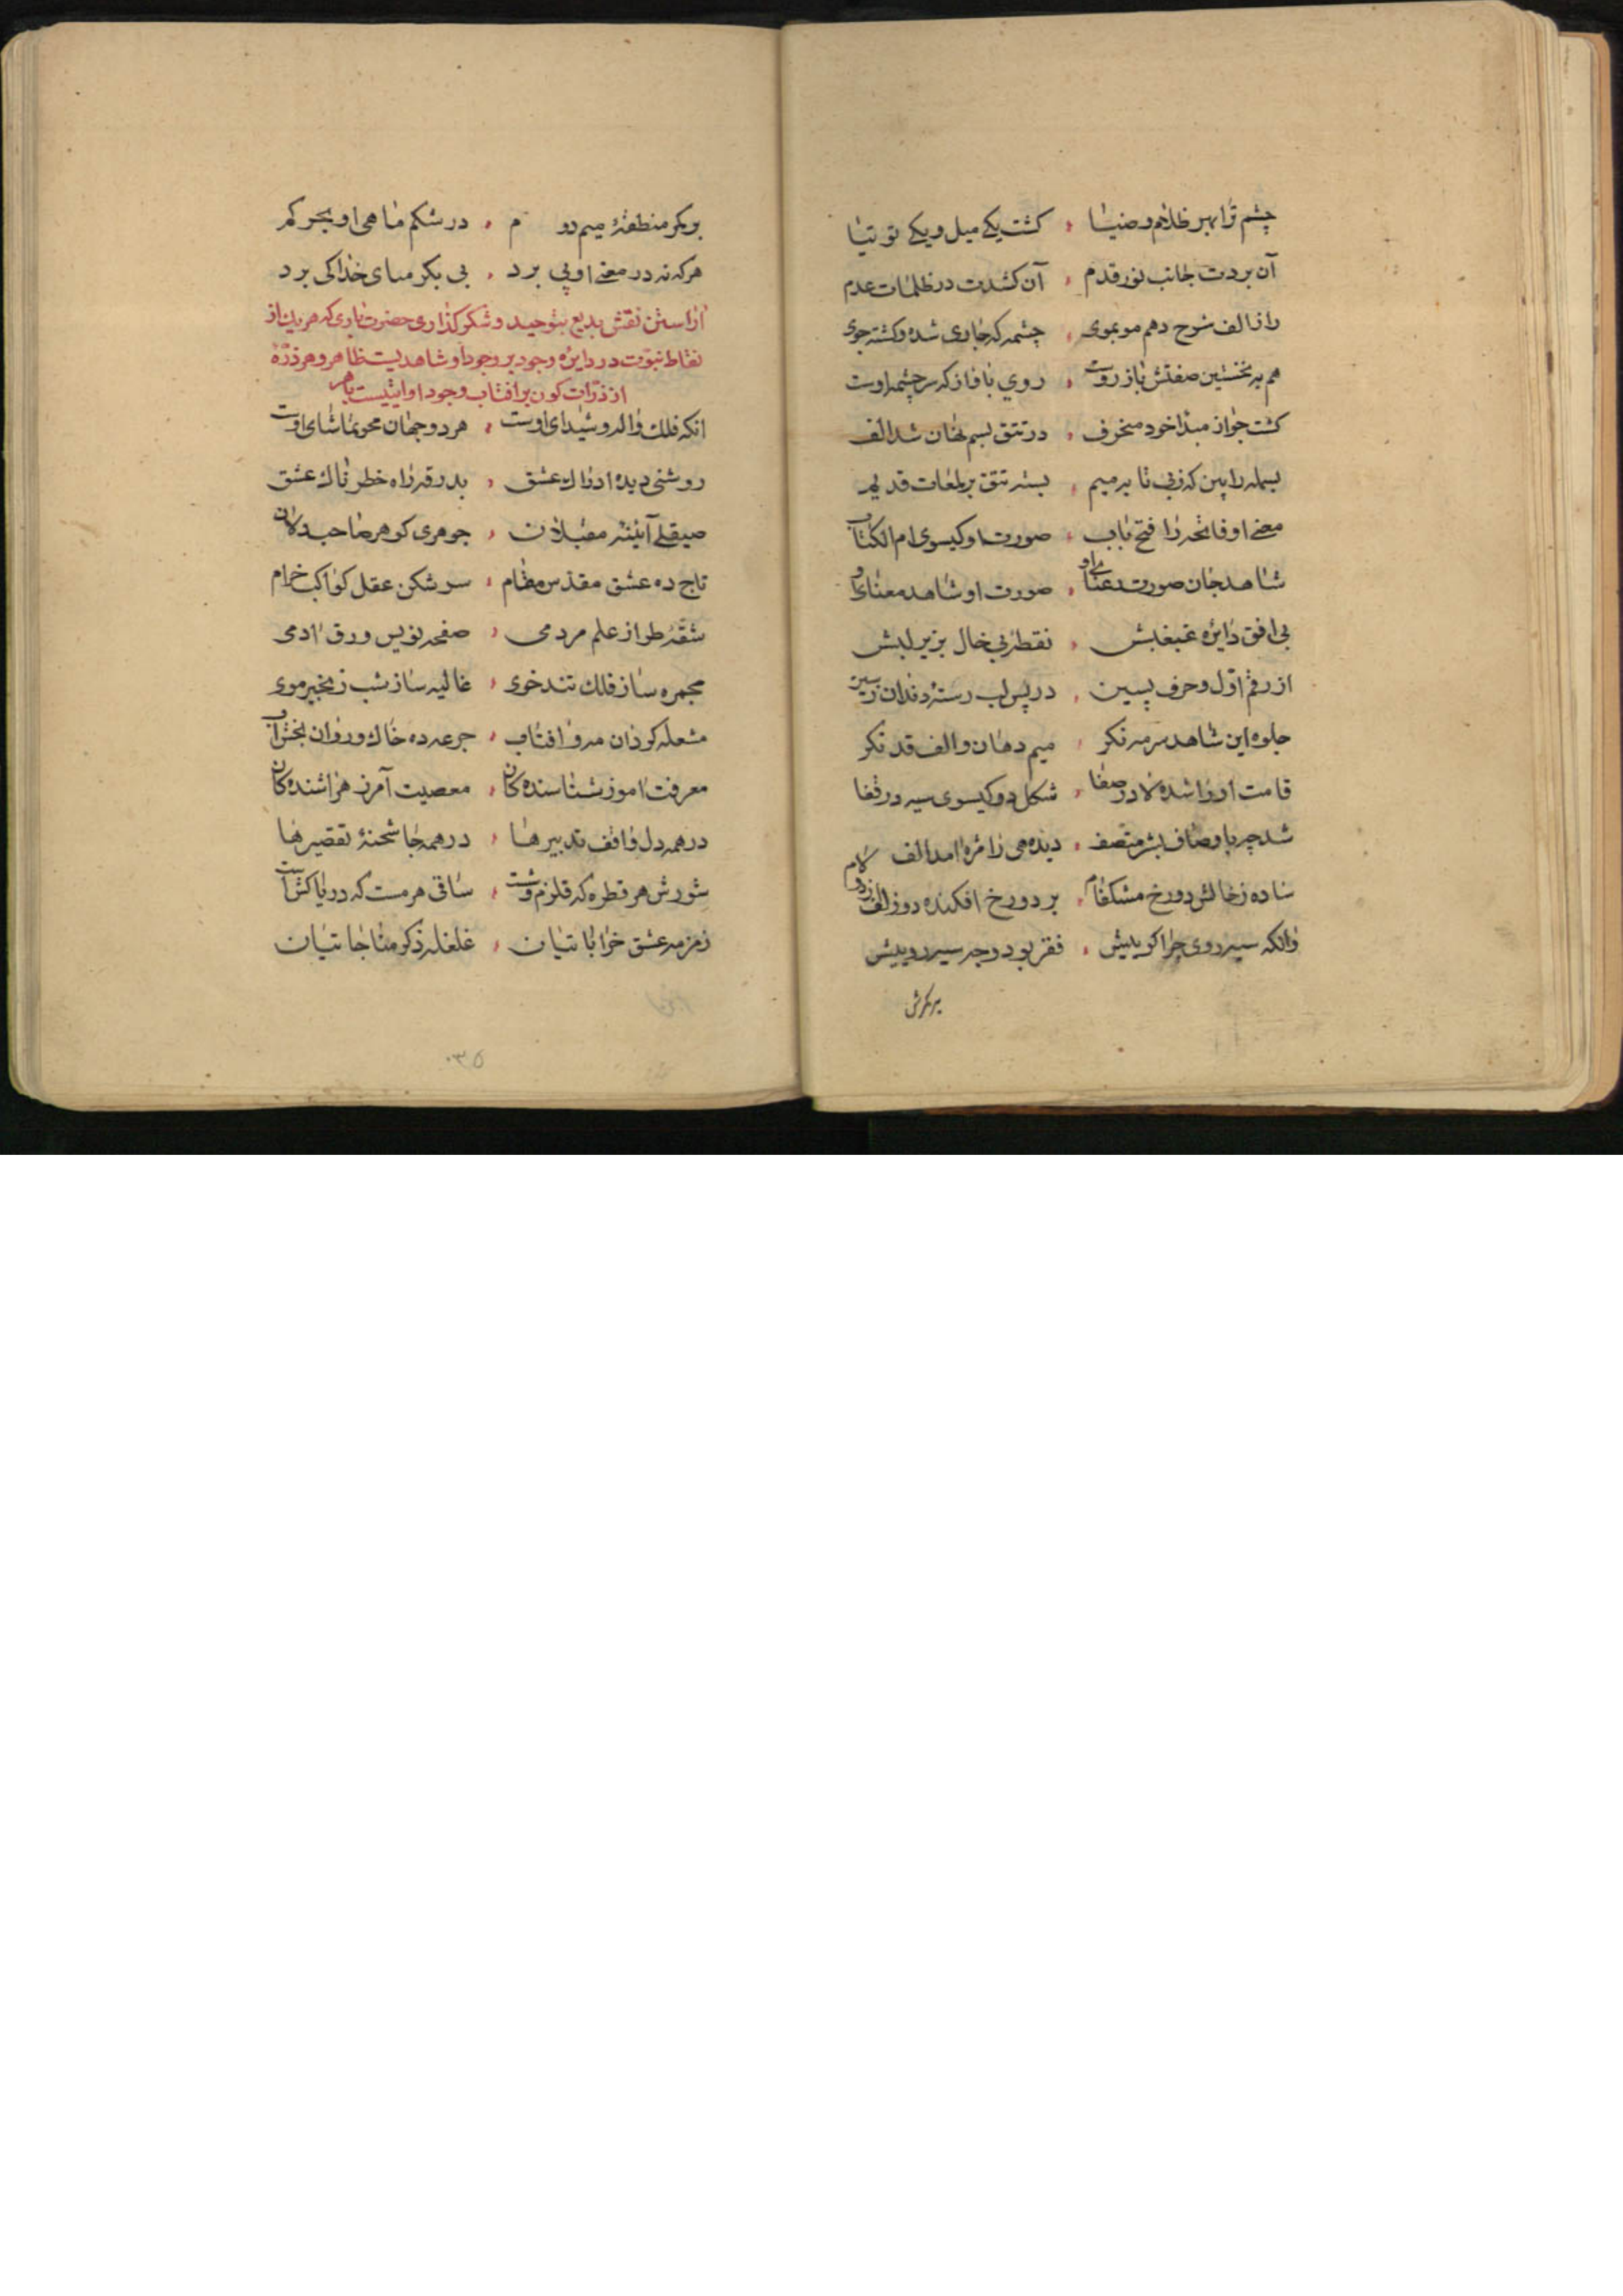 چشم ترا بهر ظلام و ضیا ، کشت یکے میل و یکے توتیا
آن بردت جانب نور قدم ، آن کشدت در ظلمات عدم
راز الف شرح دهم موبموی ، چشمه که جاری شده و کشته جوی
هم به نخستین صفتش باز روست ، روی باو از که سرچشمه اوست
کشت جو از مبدا خود منحرف ، در تتق بسم نهان شد الف
بسمله را بین که ز بی تا به میم ، بسته تتق بر لمعات قدیم
معنے او فاتحه را فتح باب ، صورت او کیسوی ام الکتاب
شاهد جان صورت رعنای او ، صورت او شاهد معنای او
بی افق دایره غبغبش ، نقطه بی خال بزیر لبش
از رقم اول و حرف پسین ، در پس لب رستۀ دندان سین
جلوه این شاهد سرمه نکر ، میم دهان و الف قد نکر
قامت او را شده لا در صفا ، شکل دو کیسوی سیه در قفا
شد چو باوصاف بشر متصف ، دیده هی زائره امد الف
ساده ز خالش دو رخ مشکفام ، بر دو رخ افکنده دو زلف دو لام
وانکه سیه روی چرا کوییش ، فقر بود وجه سیه روییش
بر کمرش
بر کمر منطقۀ میم دو م ، در شکم ماهی او بحر کم
هر که نه در معنے او پی برد ، بی بکر مسای خدا کی برد
اراستن نقش بدیع بتوحید و شکر کذاری حضرت باری که هریک از
نقاط نبوت در دایره وجود بر وجود او شاهدیست ظاهر و هر ذرۀ
از ذرات کون بر افتاب وجود او ایتیست باهر
انکه فلک واله و شیدای اوست ، هر دو جهان محو تماشای اوست
روشنی دیده ادراک عشق ، بدرقه راه خطرناک عشق
صیقلے آینه مقبلان ، جوهری کوهر صاحبدلان
تاج ده عشق مقدس مقام ، سر شکن عقل کواکب خرام
شقه طراز علم مردمی ، صفحه نویس ورق ادمی
مجمره ساز فلک تندخوی ، غالیه ساز شب زنجیر موی
مشعله کردان مه و افتاب ، جرعه ده خاک و روان بخش آب
معرفت اموز شناسنده کان ، معصیت آمرز هراسنده کان
در همه دل واقف تدبیرها ، در همه جا شحنۀ تقصیرها
شورش هر قطره که قلزم وشست ، ساقی هر مست که دریاکشست
زمزمه عشق خراباتیان ، غلغله ذکر مناجاتیان
۰۳۵